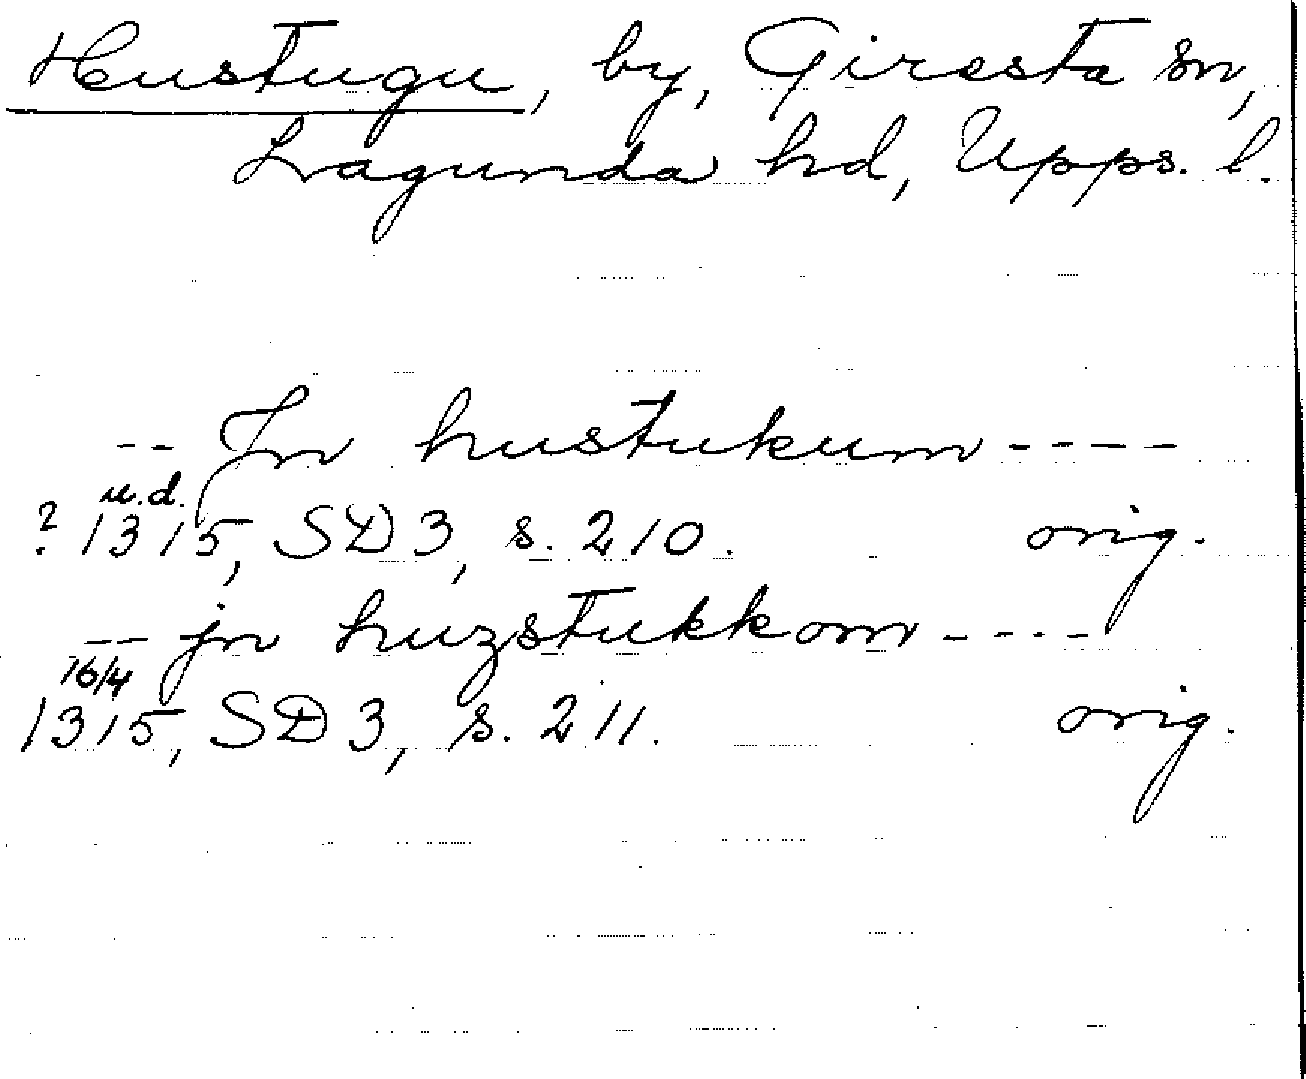 Hustugu, by, Giresta sn,
Lagunda hd, Upps. l.
-- In hustukum ----
u.d.
? 1315, SD 3, s. 210. orig.
-- jn huzstukkom ----
16/4
1315, SD 3, s. 211. orig.